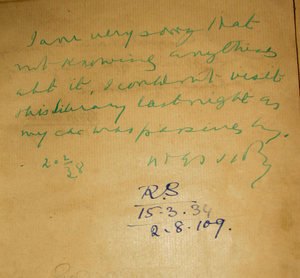 I am very sorry that
not knowing anything
abt it, I could not visit
this library last night as
my car was passing by.
R.S
15.3.34
2.8.109.